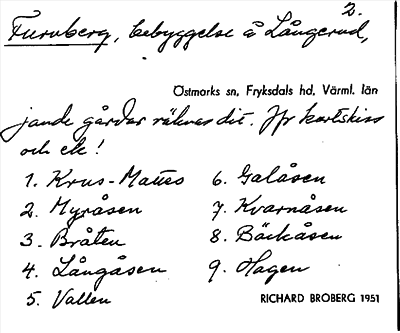 2.
Furuberg, bebyggelse å Långerud,
Östmarks sn, Fryksdals hd, Värml. län
jande gårdar räknas dit. Jfr kartskiss
och ek!
1. Krus-Matts 6. Galåsen
2. Myråsen 7. Kvarnåsen
3. Bråten 8. Bäckåsen
4. Långåsen 9. Hagen
5. Vallen
RICHARD BROBERG 1951